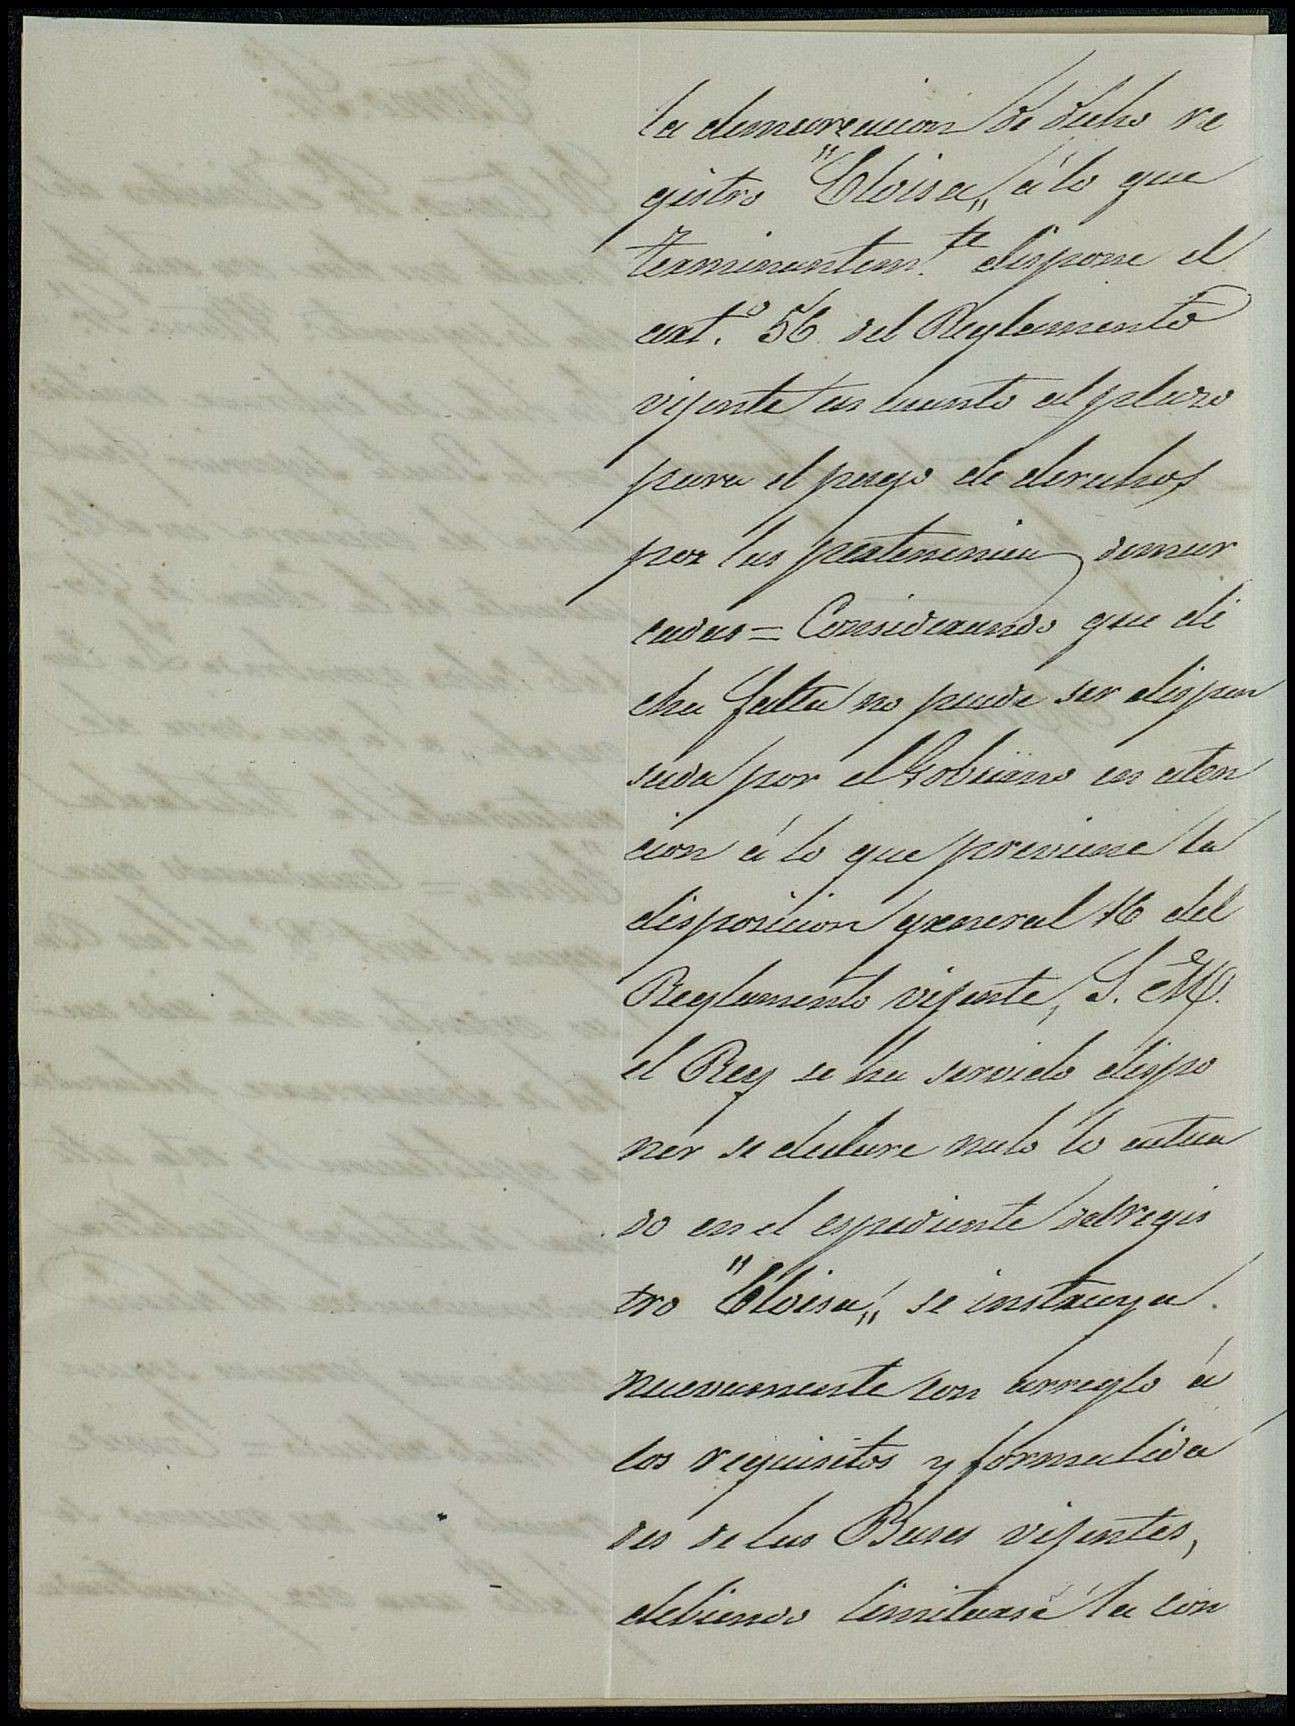 la demarcacion de dicho re
gistro "Eloisa„ á lo que
terminantem.te dispone el
art.o 56 del Reglamento
vijente en cuanto al plazo
para el pago de derechos
por las pertenencias demar
cadas = Considerando que di
cha falta no puede ser dispen
sada por el Gobierno en aten
cion á lo que previene la
disposicion general 16 del
Reglamento vijente, S. M.
el Rey se ha servido dispo
ner se declare nulo lo actua
do en el espediente del regis
tro "Eloisa„ se instruya
nuevamente con arreglo á
los requisitos y formalida
des de las Bases vijentes,
debiendo limitarse la con